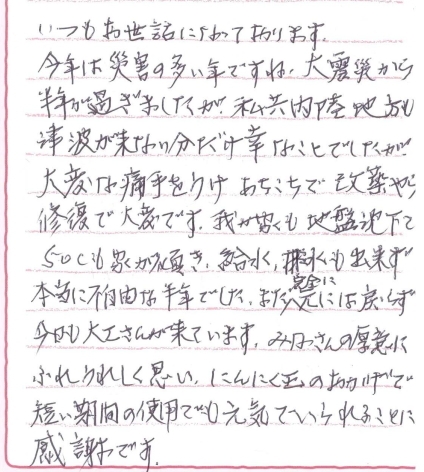 いつもお世話になっております。
今年は災害の多い年ですね。大震災から
半年が過ぎましたが、私共内陸地方も
津波が来ない分だけ幸なことでしたが、
大変な痛手をうけあちこちで改築やら
修復で大変です。我が家も地盤沈下で
50cも家が傾き、給水、排水も出来ず
本当に不自由な半年でした。まだ完全に元には戻らず
今日も大工さんが来ています。みなさんの厚意に
ふれうれしく思い、にんにく玉のおかげで
短い期間の使用でも元気でいられることに
感謝です。